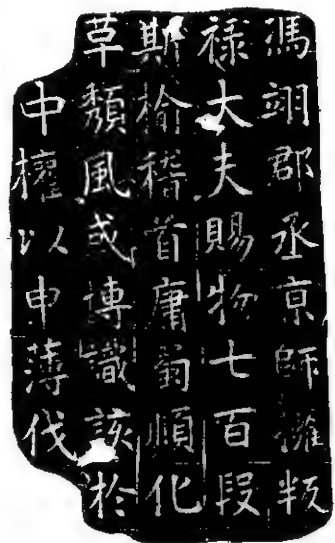 馮翊郡丞京師擁叛
祿大夫賜物七百段
斯榆稽首庸蜀順化
草頹風或博識該於
中權以申薄伐